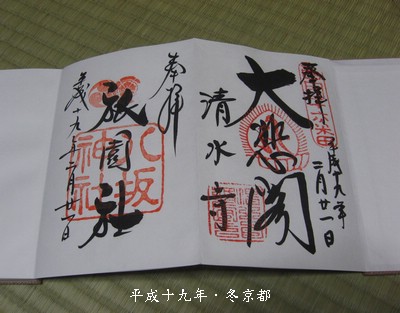 奉拝
平成十九年二月廿一日
大悲閣
清水寺
奉拝
祇園社
八坂神社
平成十九年二月廿一日
平成十九年・冬京都